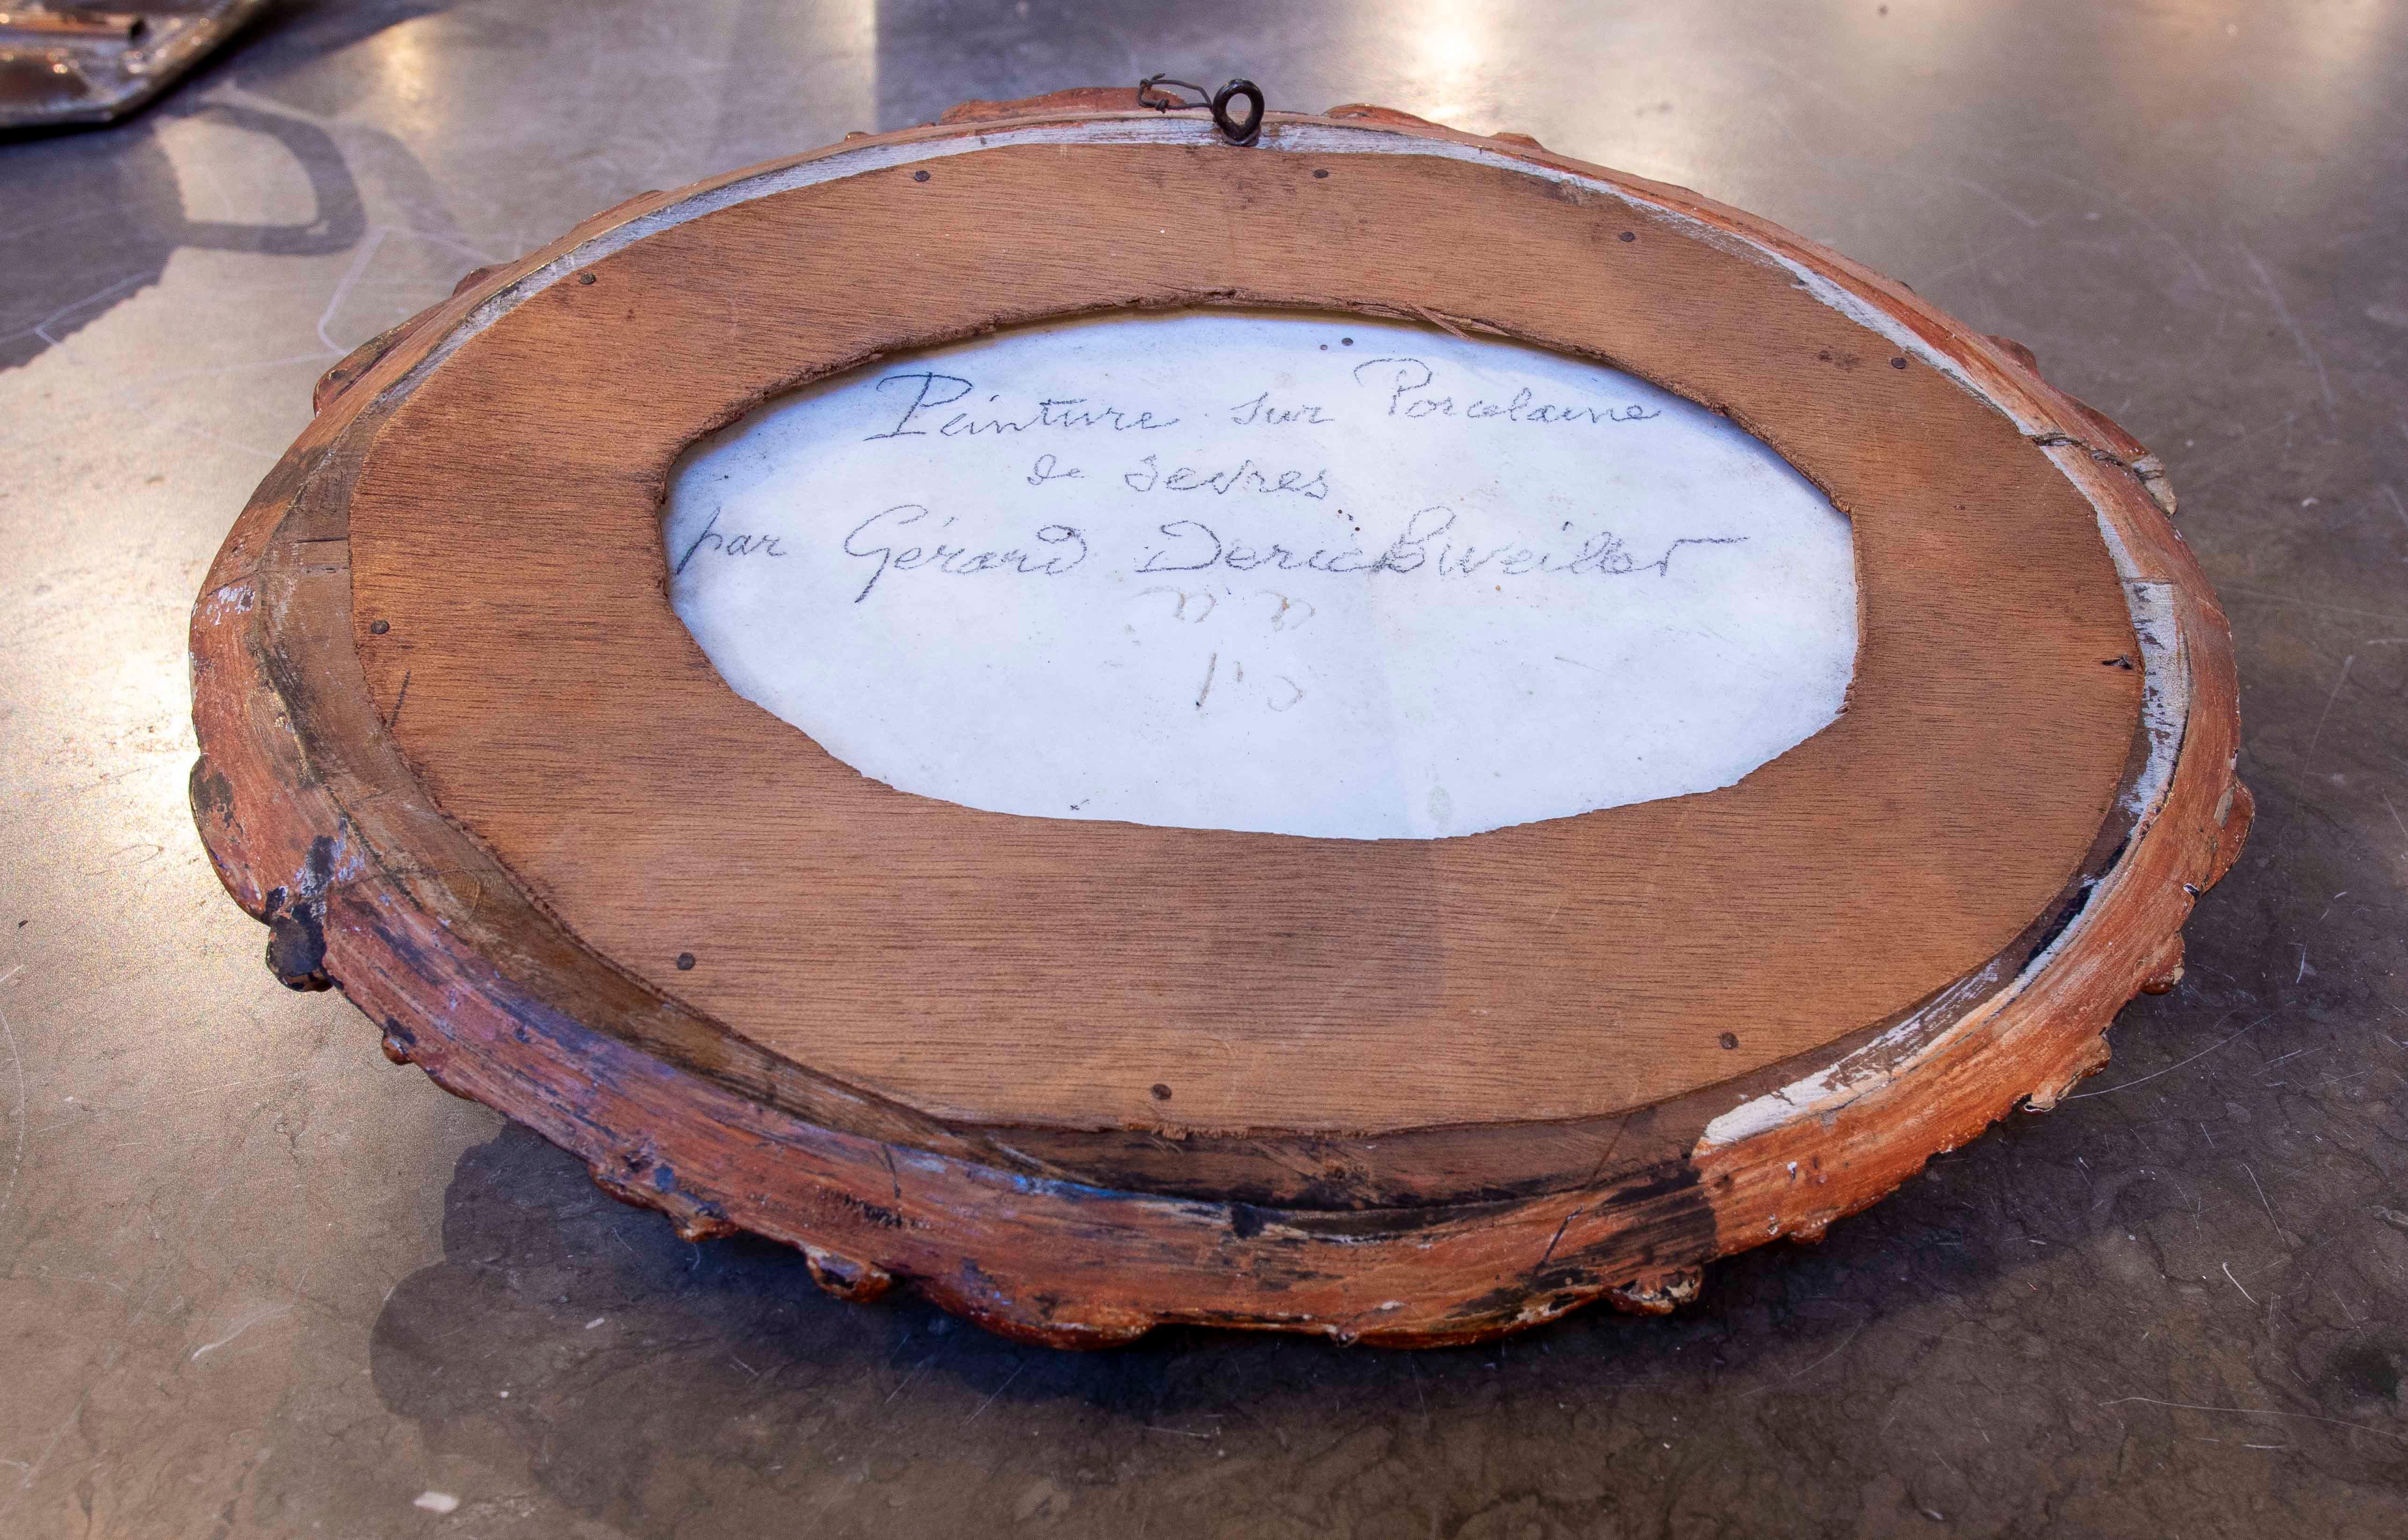 Peinture sur Porcelaine
de Sevres
par Gérard Derickxweiler